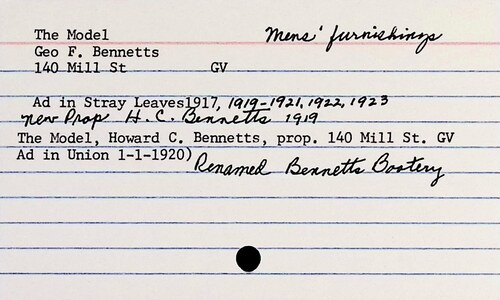 The Model Mens' furnishings
Geo F. Bennetts
140 Mill St GV
Ad in Stray Leaves1917, 1919-1921, 1922, 1923
new Prop H. C. Bennetts 1919
The Model, Howard C. Bennetts, prop. 140 Mill St. GV
Ad in Union 1-1-1920) Renamed Bennetts Bootery